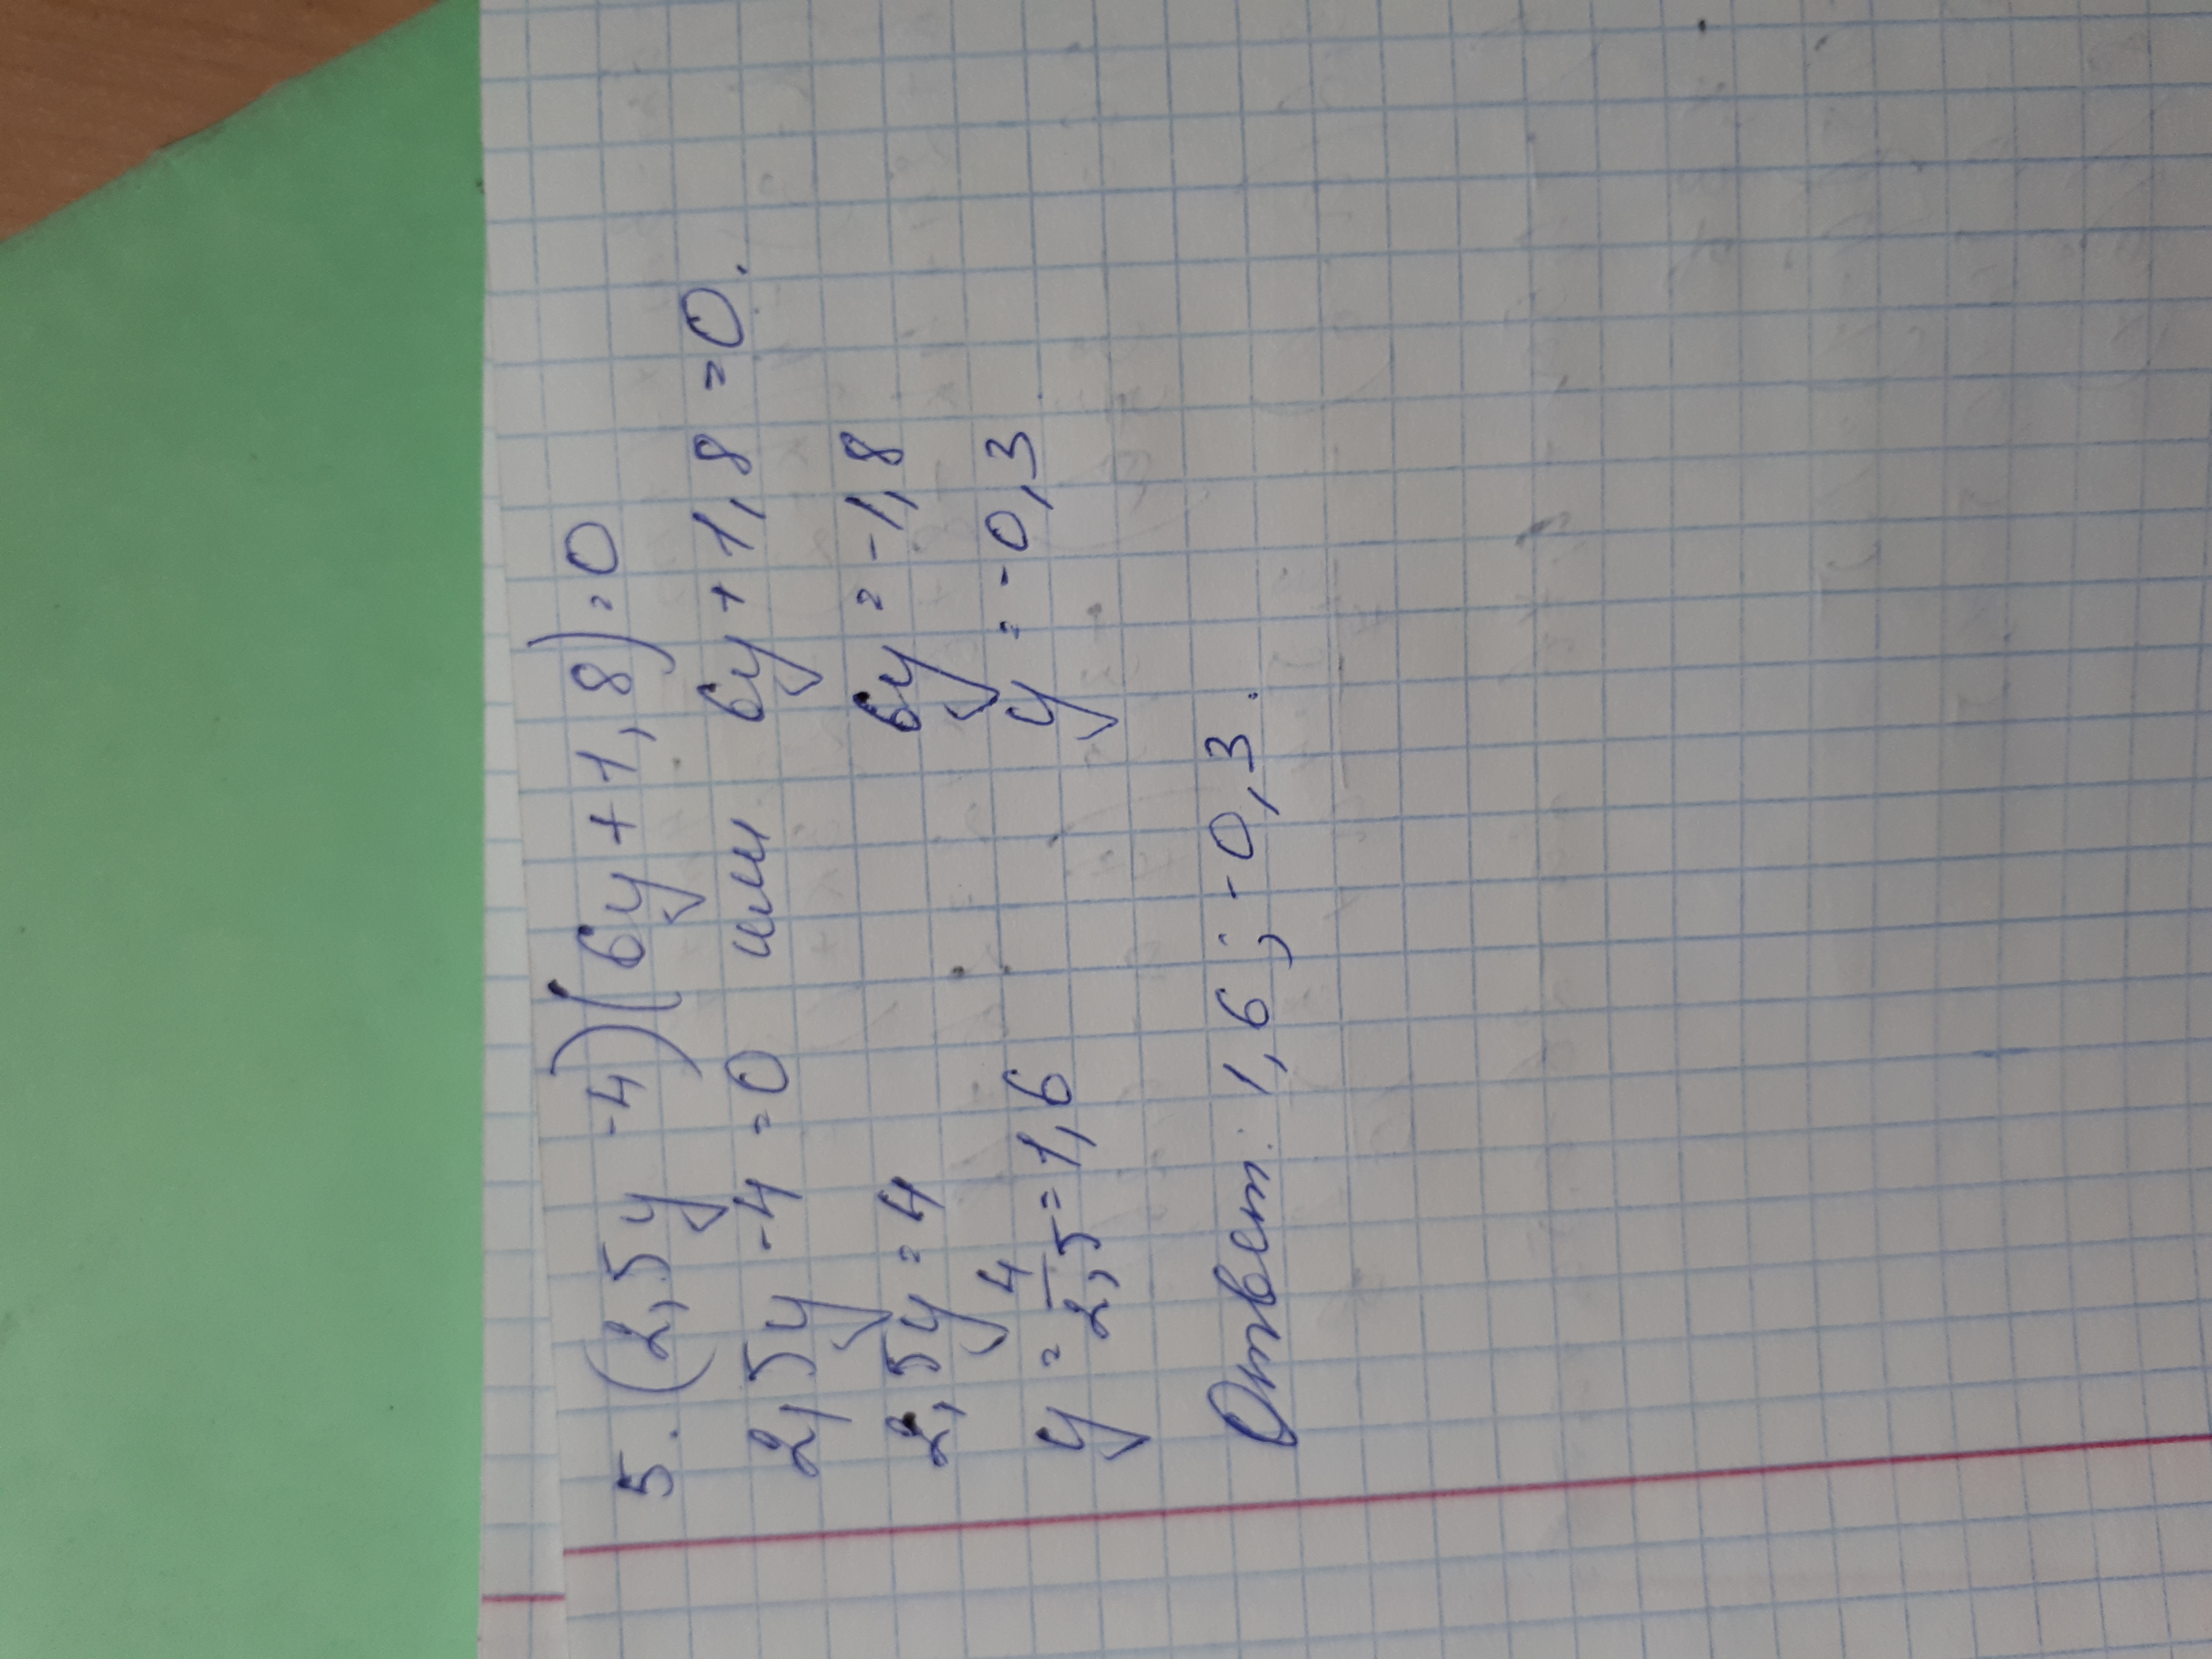 5. (2,5y -4)(6y+1,8)=0
2,5y -4 =0 или 6y+1,8 =0.
2,5y=4 6y=-1,8
y=4/2,5=1,6 y=-0,3
Ответ: 1,6; -0,3.